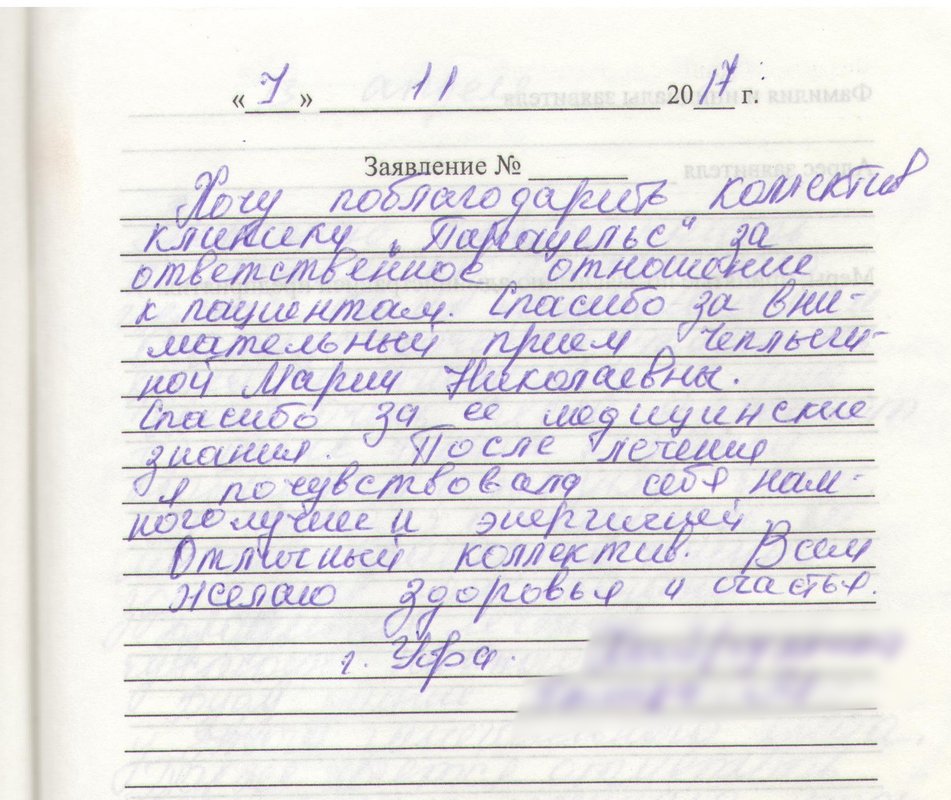 « 7 » 11 2017 г.
Заявление №
Хочу поблагодарить коллектив
клинику „Парацельс" за
ответственное отношение
к пациентам. Спасибо за вни-
мательный прием Чеплыги-
ной Марии Николаевны.
Спасибо за ее медицинские
знания. После лечения
я почувствовала себя нам-
ного лучше и энергичней
Отличный коллектив. Всем
желаю здоровья и счастья.
г. Уфа.